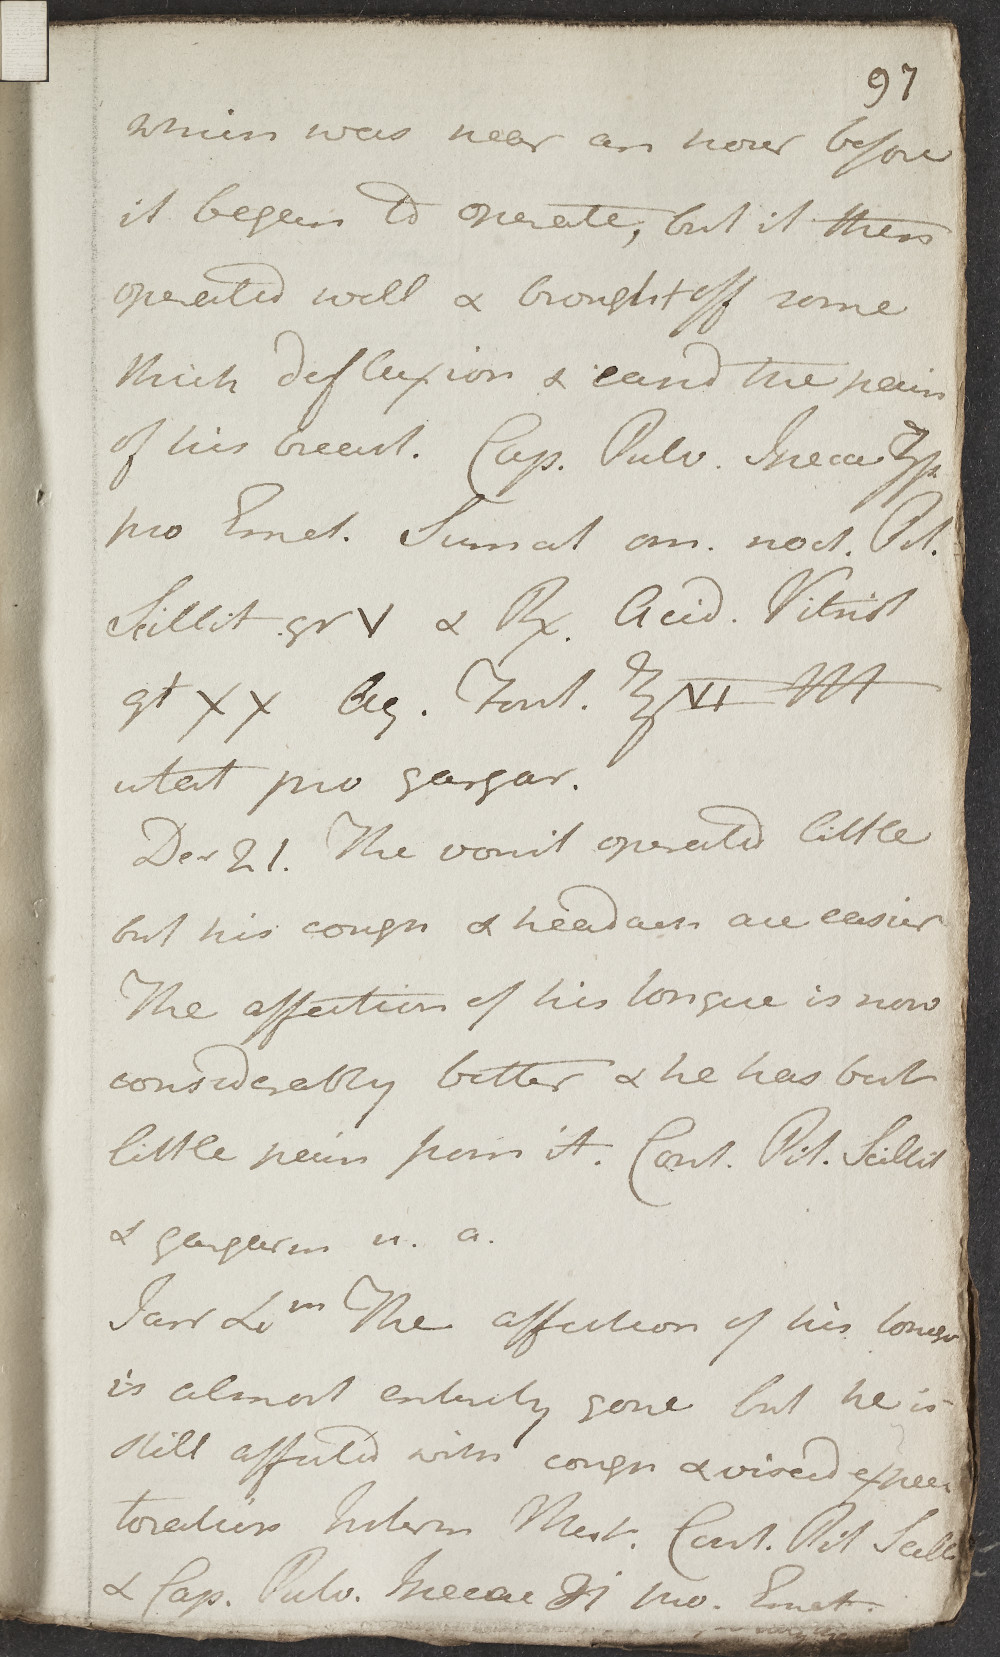 97
which was near an hour before
it began to operate, but it then
operated well & brought off some
thick defluxion & eas'd the pain
of his breast. Cap. Pulv. Ipecac
pro Emet. Sumat om. noct. Pil.
Scillit gr V & Rx. Acid. Vitriol
gt XX Aq. Font. ℥VI M
utat pro gargar.
Decr 21. The vomit operated little
but his cough & headach are easier
The affection of his tongue is now
considerably better & he has but
little pain from it. Cont. Pil. Scillit
& gargarm u. a.
Janr The affection of his tongue
is almost entirely gone but he is
still affected with cough & viscid expec
toration Cont. Pil Scill
& Cap. Pulv. Ipecac ℈i pro. Emet.